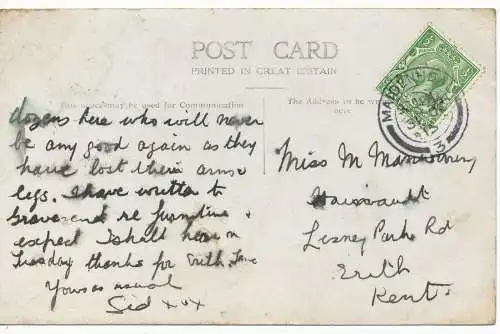 POST CARD
PRINTED IN GREAT BRITAIN
This space may be used for Communication
The Address to be written here.
dozens here who will never
be any good again as they
have lost their arms
legs. I have written to
Gravesend re furniture &
expect I shall hear on
Tuesday thanks for Erith
Yours as usual
Sid xxx
Miss M
Lesney Park Rd
Erith
Kent